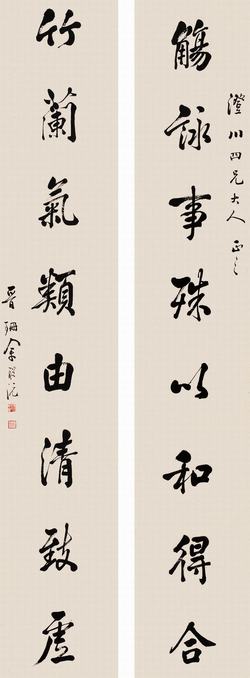 澄川四兄大人正之
觴詠事殊以和得合
竹蘭氣類由清致虛
晉珊余聯沅